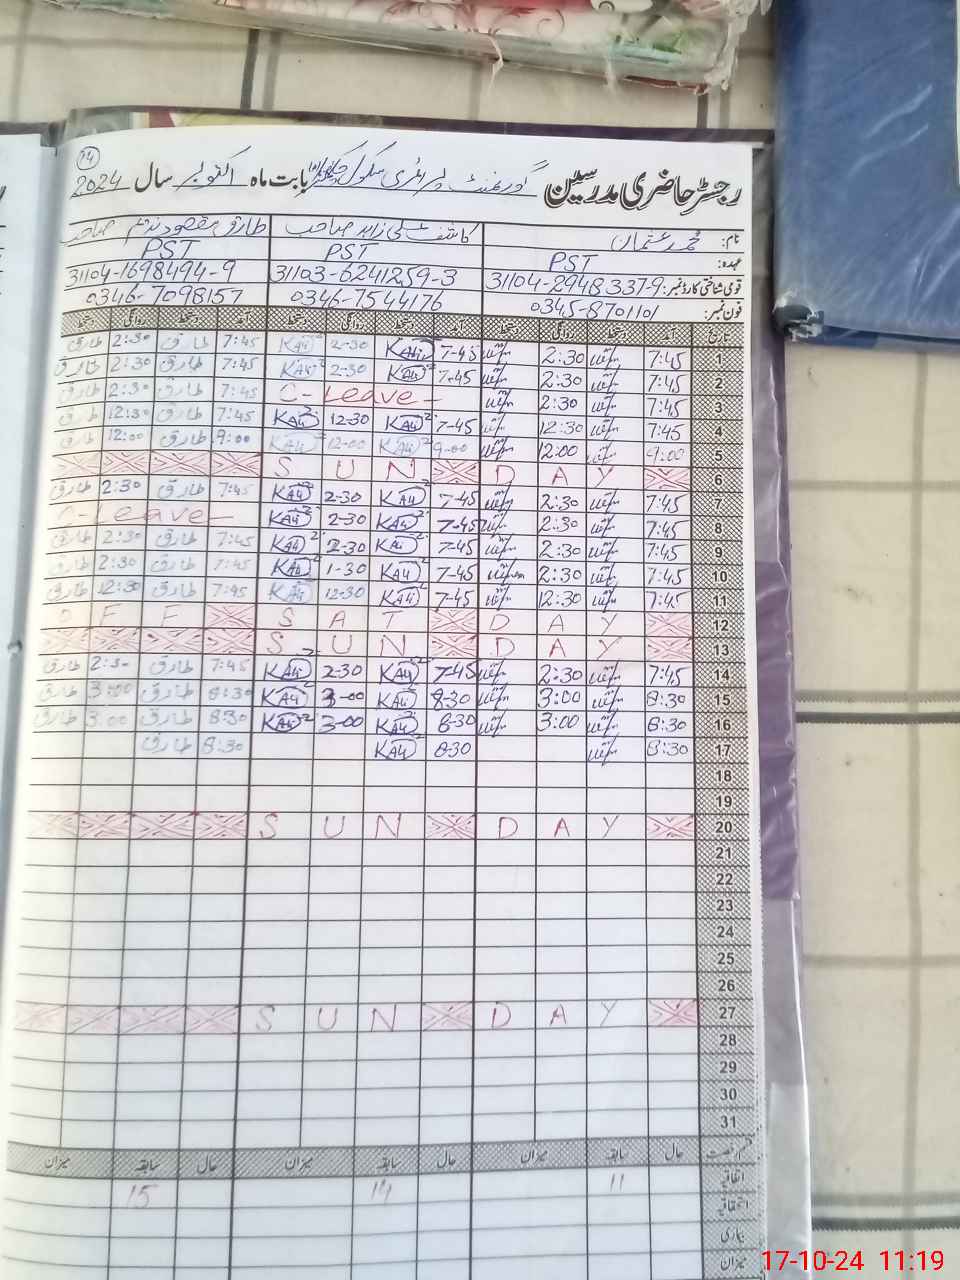 14
رجسٹر حاضری مدرسین گورنمنٹ پرائمری سکول بابت ماہ اکتوبر سال 2024
نام: محمد عثمان کاشف علی زاہد صاحب طارق مقصود ندیم صاحب
عہدہ: PST PST PST
قومی شناختی کارڈ نمبر: 31104-2948337-9 31103-6241259-3 31104-1698494-9
فون نمبر: 0345-8701101 0346-7544176 0346-7098157
تاریخ آمد دستخط روانگی دستخط آمد دستخط روانگی دستخط آمد دستخط روانگی دستخط
1 7:45 2:30 7-45 KAli 2-30 KAli 7:45 طارق 2:30 طارق
2 7:45 2:30 7-45 KAli 2-30 KAli 7:45 طارق 2:30 طارق
3 7:45 2:30 C-Leave 7:45 طارق 2:30 طارق
4 7:45 12:30 7-45 KAli 12-30 KAli 7:45 طارق 12:30 طارق
5 9:00 12:00 9-00 KAli 12-00 KAli 9:00 طارق 12:00 طارق
6 S U N D A Y
7 7:45 2:30 7-45 KAli 2-30 KAli 7:45 طارق 2:30 طارق
8 7:45 2:30 7-45 KAli 2-30 KAli C-Leave
9 7:45 2:30 7-45 KAli 2-30 KAli 7:45 طارق 2:30 طارق
10 7:45 2:30 7-45 KAli 1-30 KAli 7:45 طارق 2:30 طارق
11 7:45 12:30 7-45 KAli 12-30 KAli 7:45 طارق 12:30 طارق
12 O F F S A T D A Y
13 S U N D A Y
14 7:45 2:30 7-45 KAli 2-30 KAli 7:45 طارق 2:30 طارق
15 8:30 3:00 8-30 KAli 3-00 KAli 8:30 طارق 3:00 طارق
16 8:30 3:00 8-30 KAli 3-00 KAli 8:30 طارق 3:00 طارق
17 8:30 8-30 KAli 8:30 طارق
18
19
20 S U N D A Y
21
22
23
24
25
26
27 S U N D A Y
28
29
30
31
قسم رخصت حال سابقہ میزان حال سابقہ میزان حال سابقہ میزان
اتفاقیہ 11 14 15
استحقاقیہ
بیماری
میزان
17-10-24 11:19